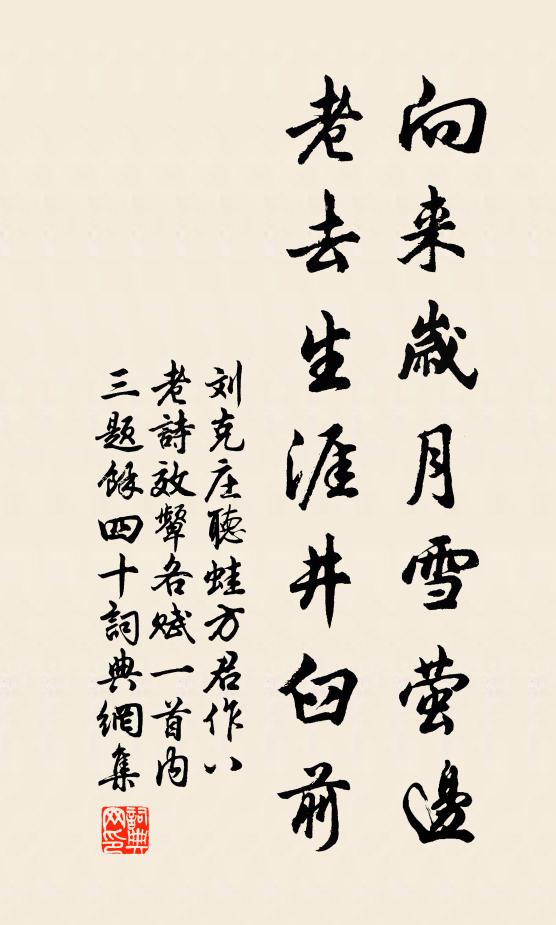 向来歲月雪萤邊
老去生涯井臼前
刘克庄聽蛙方君作八
老詩效顰各赋一首内
三題餘四十詞典網集
詞典网印